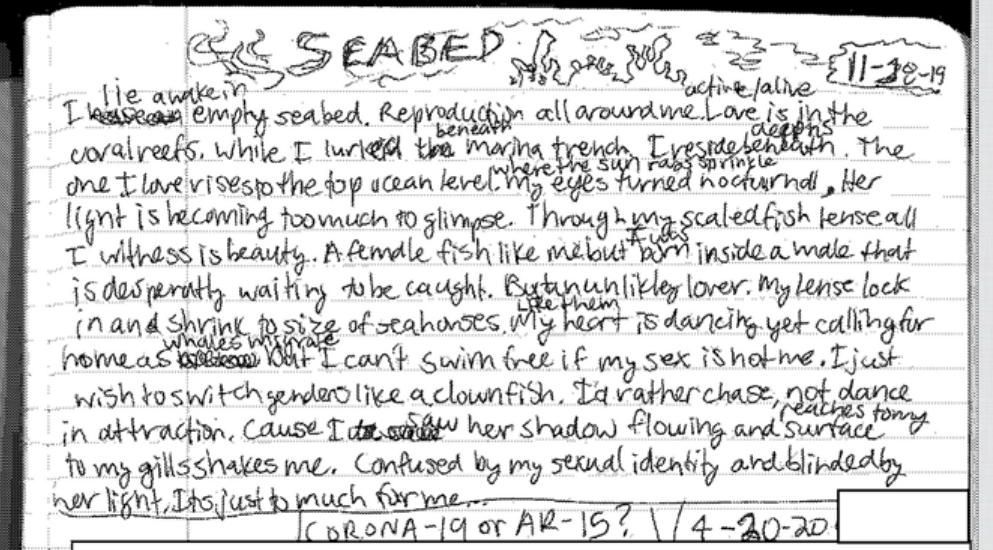 SEABED
11-28-19
lie awake in active/alive
I empty seabed. Reproduction all around me. Love is in the
beneath deepths
coral reefs. While I lurk the marina trench. I reside beneath. The
where the sun rays sprinkle
one I love rises to the top ocean level. My eyes turned nocturnal, Her
light is becoming too much to glimpse. Through my scaled fish lense all
I was
I witness is beauty. A female fish like me but born inside a male that
is desperatly waiting to be caught. But an unlikley lover. My lense lock
like them
in and shrink to size of seahorses. My heart is dancing yet calling for
whales migrate
home as but I can't swim free if my sex is not me. I just
wish to switch genders like a clownfish. I'd rather chase, not dance
reaches to my
in attraction. Cause I saw her shadow flowing and surface
to my gills shakes me. Confused by my sexual identity and blinded by
her light, Its just to much for me...
CORONA-19 or AR-15? 4-20-20